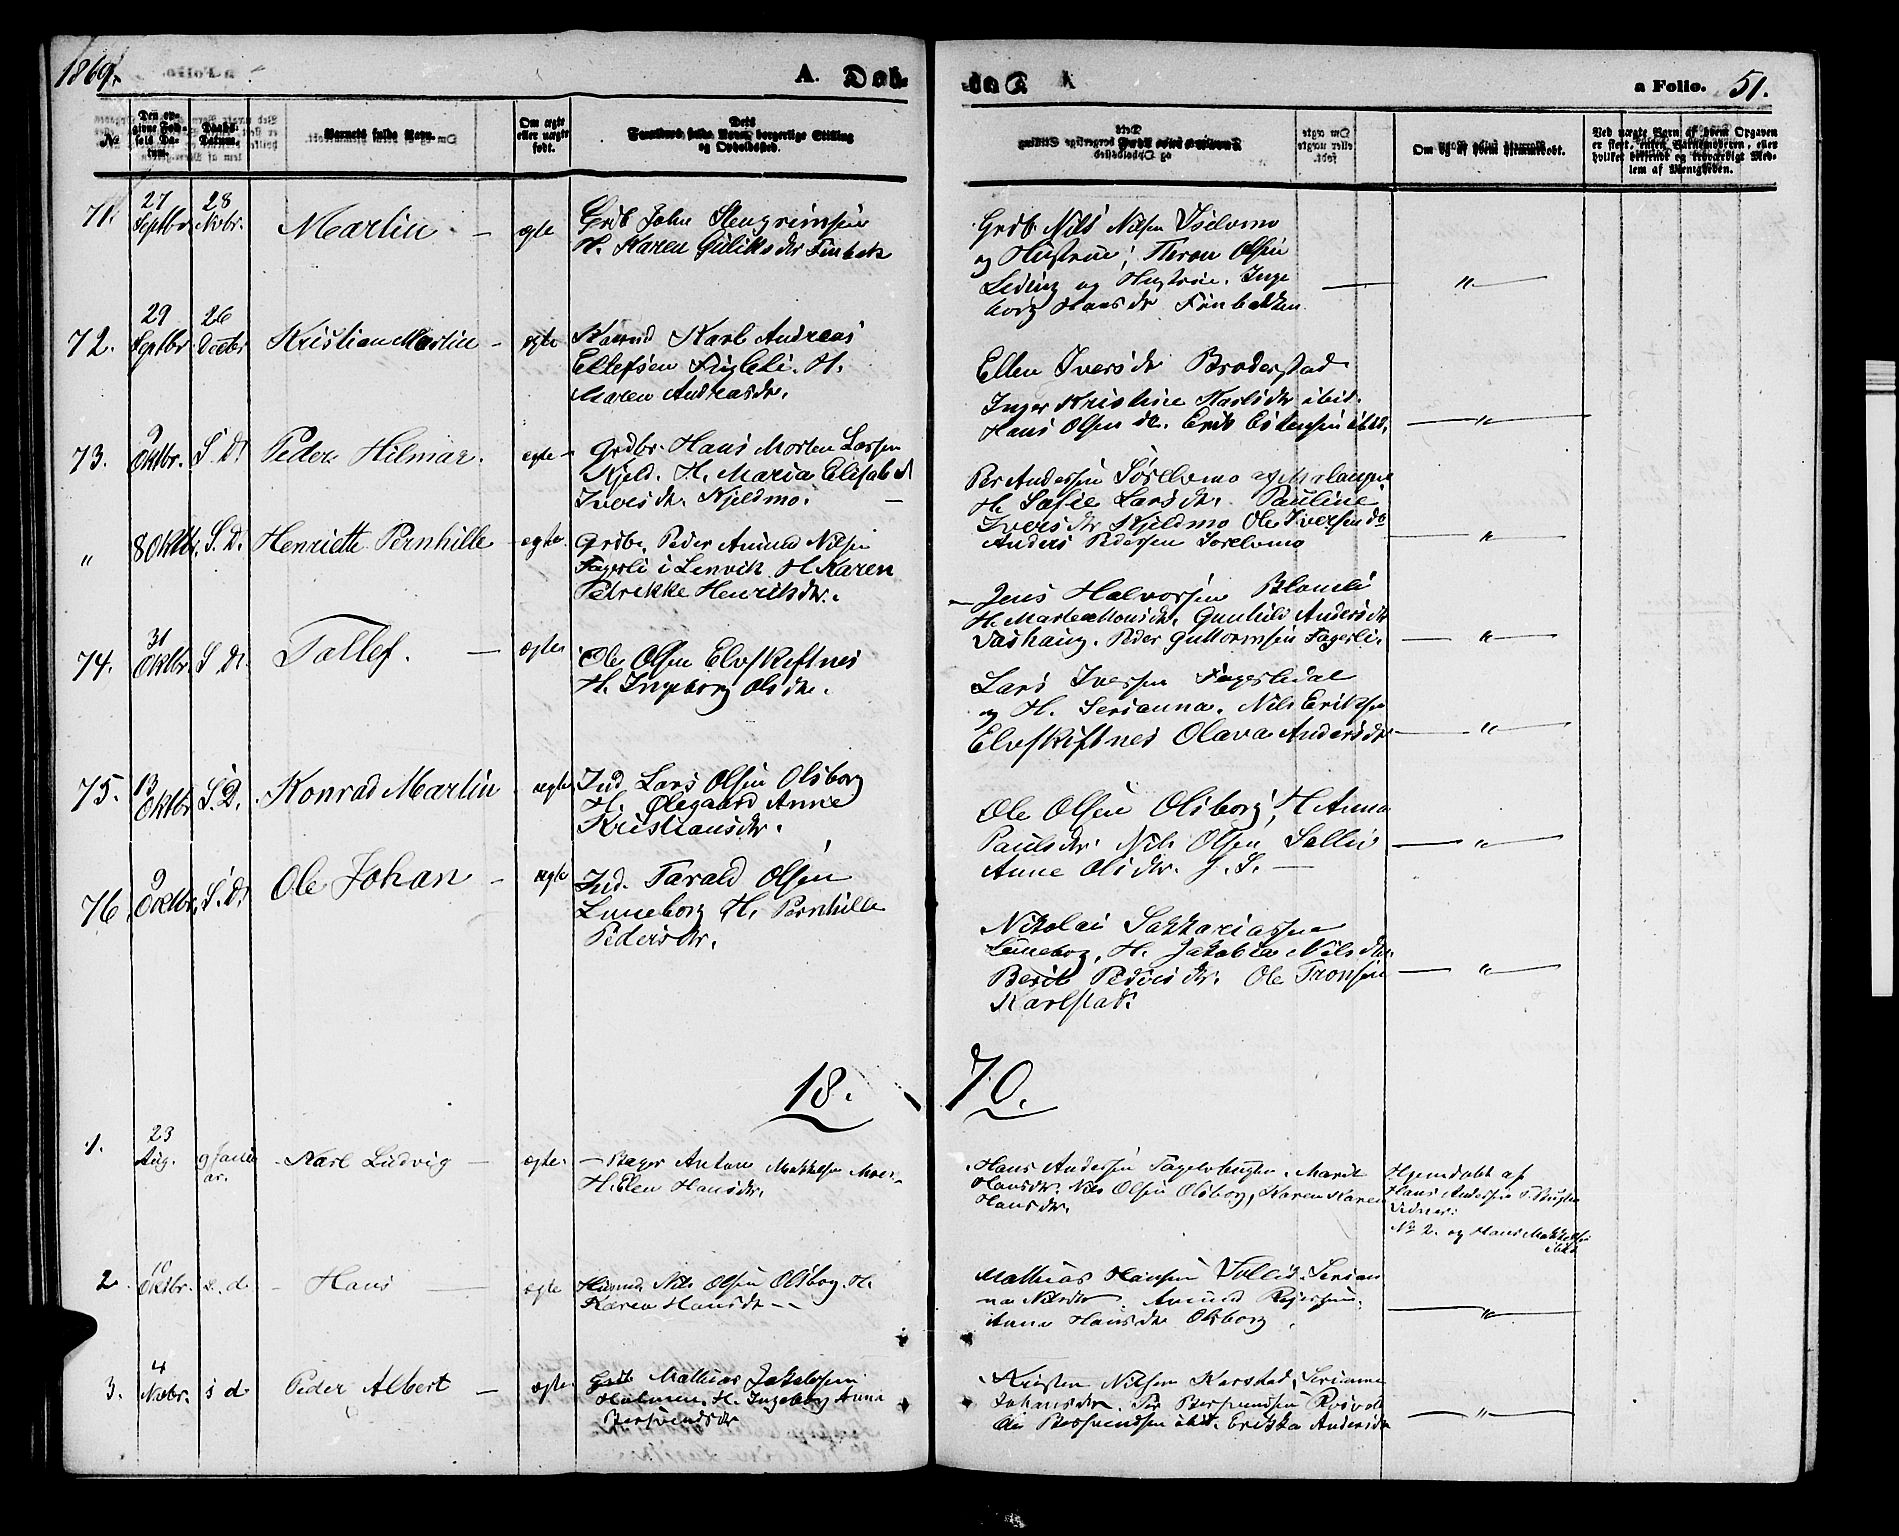 1869.
A. Døb
a Folio. 51.
№
Den opgivne Fødsels Datum.
Daabs-Datum.
Barnets fulde Navn.
Om ægte eller uægte født.
Dets Forældres fulde Navn, borgerlige Stilling og Opholdssted.
Om og af hvem hjemmedøbt.
Ved uægte Børn af hvem Opgaven er skeet, enten Barnemoderen, eller hvilket betroede og troværdigt Medlem af Menigheden.
71. 27 Septbr. 28 Novbr. Martin — egte
Grdb. John Stengrimsen
H. Karen Guliksdr Finbak
Grdb. Nils Nilsen
og Hustrue,
og Hustrue. Inge
borg Hansdr Finbakken
— " —
72. 29 Septbr 26 Decbr Kristian Martin - egte
Karl Andreas
Ellefsen Fugleli. H.
Maren Andreasdr.
Ellen Iversdr Broderstad
Inger Kristine Karlsdr ibid.
Hans Olsen do. Erik Eistensen ibid.
— " —
73. 9 Oktbr. S. D. Peder Hilmar. egte -
Grdbr. Hans Morten Larsen
Kjeld. H. Maria Elisabet
Iversdr. Kjeldmo. —
Per Andersen Sørelvmo af Malangen
H. Sofie Larsdr. Pauline
Iversdr Kjeldmo Ole Iversen do
Anders Pedersen Sørelvmo
" 8 Oktbr. S. D. Henriette Pernhille - egte.
Grdbr. Peder Amund Nilsen
Fagerli i Lenvik H Karen
Petrikke Henriksdr.
— " —
Jens Halvorsen Blomli
H. Marten Monsdr. Gunhild Andersdr
Peder Guttormsen Fagerli.
— " —
74. 31 Oktbr. S D. Tollef. — egte
Ole Olsen Elvskiftnes
H. Ingeborg Olsdr.
Lars Iversen Fagerlidal
og H. Serianna. Nils Eriksen
Elvskiftnes Olava Andersdr
— " —
75. 13 Oktbr S. D. Konrad Martin egte
Ind. Lars Olsen Olsborg
H. Olegaard Anne
Kristiansdr.
Ole Olsen Olsborg, H Anna
Paulsdr. Nils Olsen Sollid
Anne Olsdr. J. S. —
— " —
76. 9 Octbr. S. D. Ole Johan - egte
Ind. Tarald Olsen
Luneborg H. Pernhille
Pedersdr.
Nikolai Sakkariassen
Luneborg, H. Jakobia Nilsdtr
Berit Pedersdr. Ole Tronsen
Karlstad.
— " —
18. 70.
1. 23 Aug. 9 Januar. - Karl Ludvig — egte.
- Bager Anton Mikkelsen Moen
H. Elen Hansdr.
Hans Andersen Marit
Hansdr. Nils Olsen Olsborg, Karen Karen
Hansdr.
Hjemdøbt af
Hans Andersen
№ 2. og Hans Mikkelsen
ibid.
2. 10 Oktbr. s. d. - Hans — egte
Husmd. Nils Olsen Olsborg. H.
Karen Hansdr —
Mathias Hansen Sollid. Serian
na Nilsdr. Amund
Anne Hansdr Olsborg.
— " —
3. 4 Novbr. s d. Peder Albert — egte
Grdb Mathias Jakobsen
Holmen. H. Ingeborg Anna
Bersvendsdr
Kristen Nilsen Karstad, Serianna
Johansdr. Per Bersvendsen
Ole Bersvendsen ibid. Erikka Andersdr
— " —